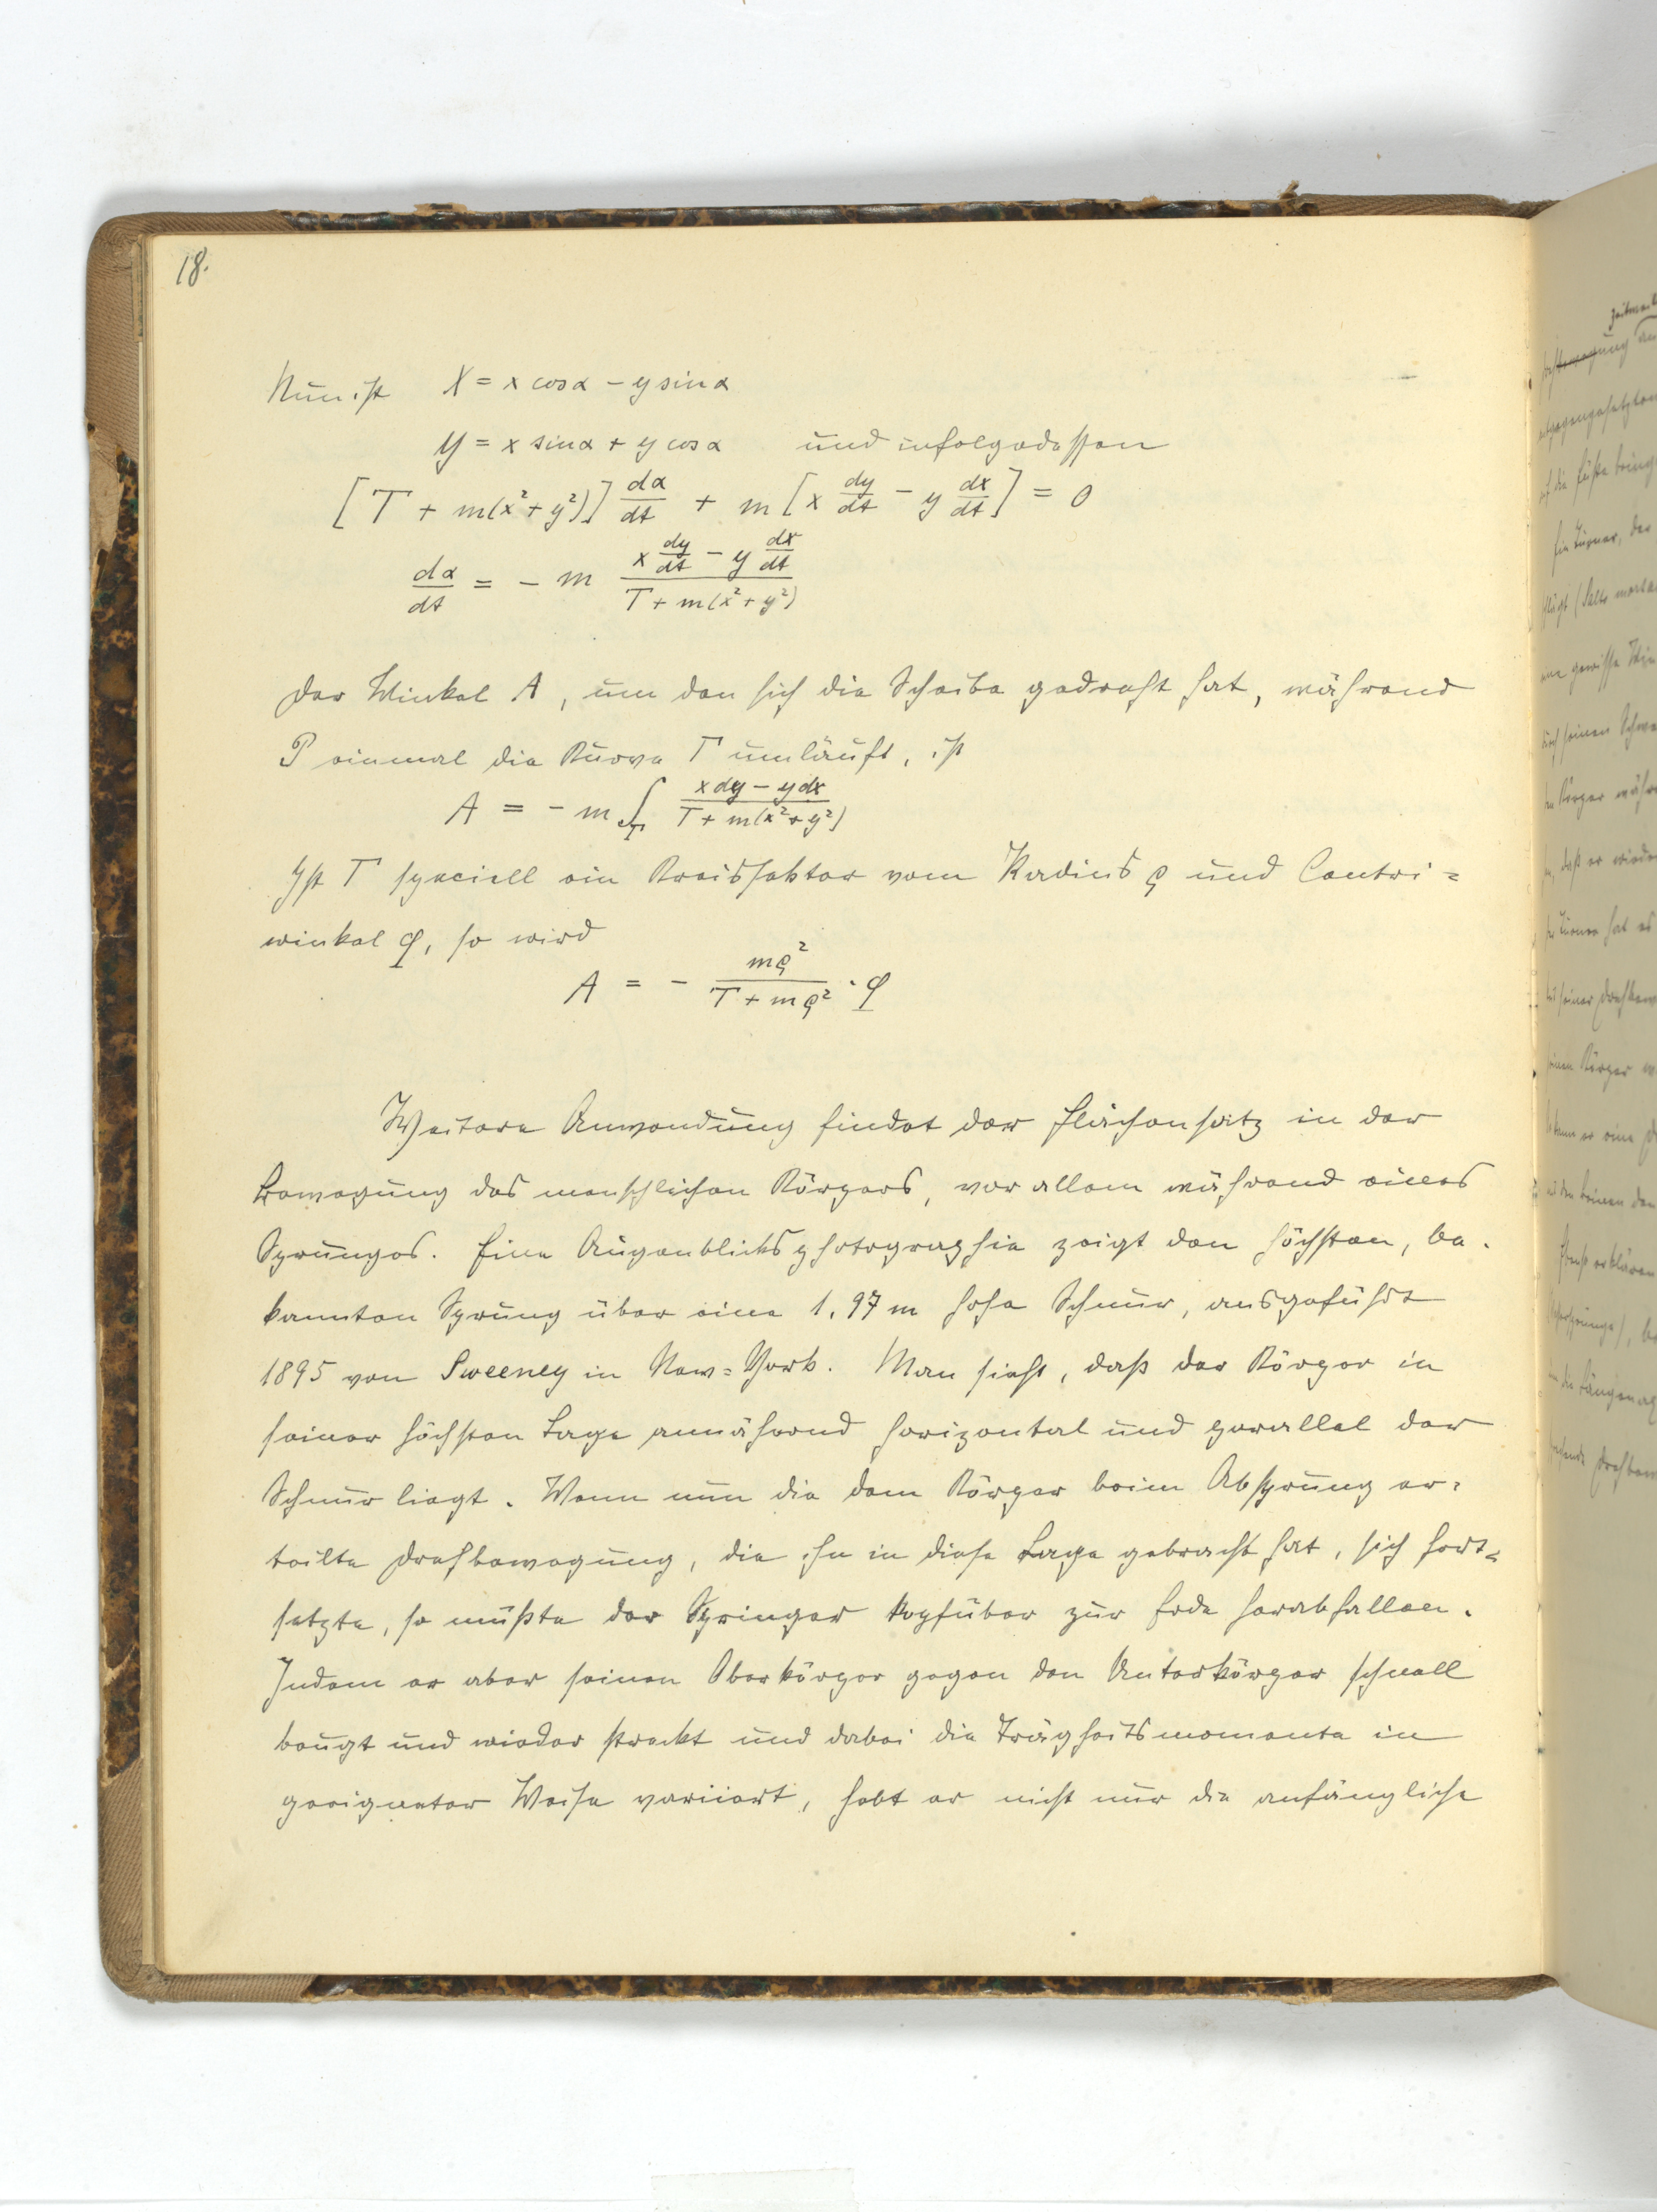 18.
Nun ist X = x cosα − y sinα
Y = x sinα + y cosα und infolgedessen
[T + m(x² + y²)] dα/dt + m [x dy/dt − y dx/dt] = 0
dα/dt = − m (x dy/dt − y dx/dt)/(T + m(x² + y²))
Der Winkel A, um den sich die Scheibe gedreht hat, während
P einmal die Kurve Γ umläuft, ist
A = − m ∫_Γ (x dy − y dx)/(T + m(x² + y²))
Ist Γ speciell ein Kreissektor vom Radius ϱ und Centri=
winkel φ, so wird
A = − mϱ²/(T + mϱ²) · φ
Weitere Anwendung findet der Flächensatz in der
Bewegung des menschlichen Körpers, vor allem während eines
Sprunges. Eine Augenblicksphotographie zeigt den höchsten, be-
kannten Sprung über eine 1.97 m hohe Schnur, ausgeführt
1895 von Sweeney in New=York. Man sieht, daß der Körper in
seiner höchsten Lage annähernd horizontal und parallel der
Schnur liegt. Wenn nun die dem Körper beim Absprung er=
teilte Drehbewegung, die ihn in diese Lage gebracht hat, sich fort=
setzte, so müßte der Springer kopfüber zur Erde herabfallen.
Indem er aber seinen Oberkörper gegen den Unterkörper schnell
beugt und wieder streckt und dabei die Trägheitsmomente in
geeigneter Weise variiert, hebt er nicht nur die anfängliche